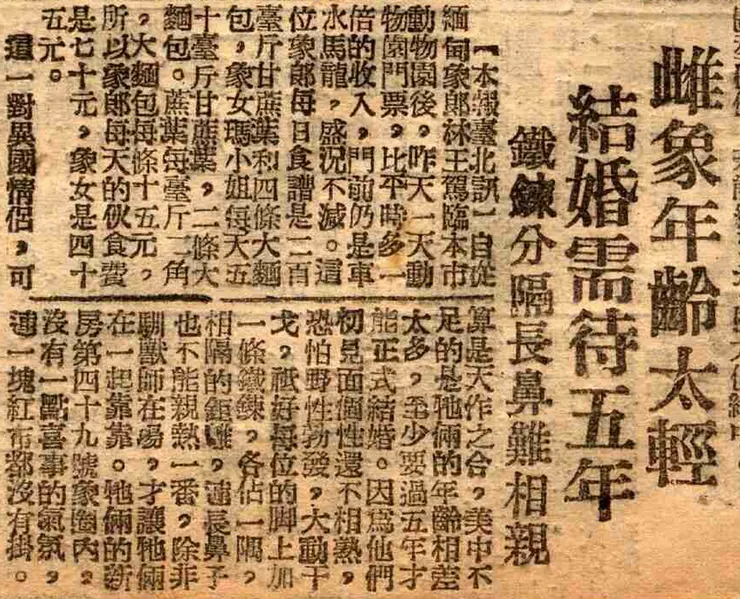 雌象年齡太輕
結婚需待五年
鐵鍊分隔長鼻難相親
【本報臺北訊】自從
緬甸象郎林王駕臨本市
動物園後,昨天一天動
物園門票,比平時多一
倍的收入,門前仍是車
水馬龍,盛況不減。這
位象郎每日食譜是二百
臺斤甘蔗葉和四條大麵
包,象女瑪小姐每天五
十臺斤甘蔗葉,二條大
麵包。蔗葉每臺斤二角
,大麵包每條十五元,
所以象郎每天的伙食費
是七十元,象女是四十
五元。
這一對異國情侶,可
算是天作之合,美中不
足的是牠倆的年齡相差
太多,至少要過五年才
能正式結婚。因爲他們
初見面個性還不相熟,
恐怕野性勃發,大動干
戈,祇好每位的脚上加
一條鐵鍊,各佔一隅,
相隔的鉅離,連長鼻子
也不能親熱一番,除非
馴獸師在場,才讓牠倆
在一起靠靠。牠倆的新
房第四十九號象圈內,
沒有一點喜事的氣氛,
連一塊紅布都沒有掛。